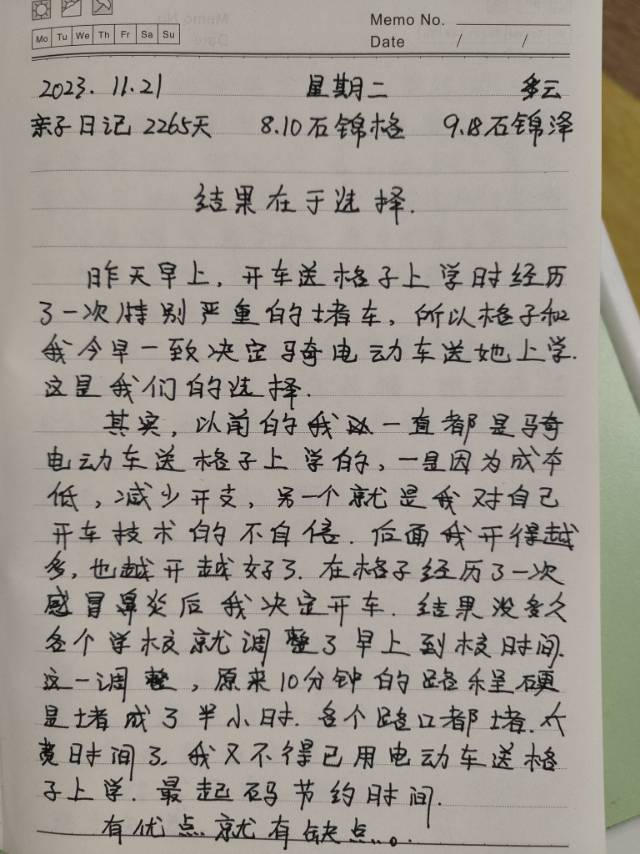 Memo No.
Mo Tu We Th Fr Sa Su
Date / /
2023.11.21 星期二 多云
亲子日记 2265天 8.10石锦格 9.18石锦泽
结果在于选择.
昨天早上，开车送格子上学时经历
了一次特别严重的堵车，所以格子和
我今早一致决定骑电动车送她上学.
这是我们的选择.
其实，以前的我一直都是骑
电动车送格子上学的，一是因为成本
低，减少开支，另一个就是我对自己
开车技术的不自信.后面我开得越
多，也越开越好了.在格子经历了一次
感冒鼻炎后我决定开车.结果没多久
各个学校就调整了早上到校时间.
这一调整，原来10分钟的路程硬
是堵成了半小时.各个路口都堵.太
费时间了.我又不得已用电动车送格
子上学.最起码节约时间.
有优点就有缺点。